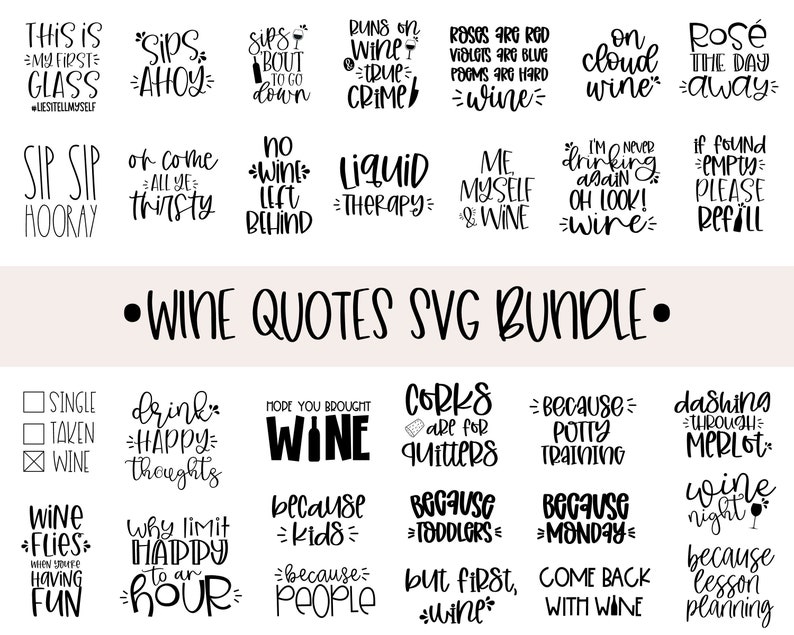 THIS IS
MY FIRST
GLASS
#LIESITELLMYSELF
SIPS
AHOY
SIPS
'BOUT
TO GO
down
RUNS ON
WINE
& TRUE
CRIME
ROSES ARE RED
VIOLETS ARE BLUE
POEMS ARE HARD
wine
on
cloud
wine
ROSÉ
THE DAY
away
SIP SIP
HOORAY
oh come
ALL YE
thirsty
NO
WINE
LEFT
BEHIND
LIQUID
THERAPY
ME,
MYSELF
& WINE
I'M NEVER
drinking
again
OH LOOK!
wine
if found
EMPTY
PLEASE
REFILL
•WINE QUOTES SVG BUNDLE•
SINGLE
TAKEN
WINE
drink
HAPPY
thoughts
HOPE YOU BROUGHT
WINE
CORKS
ARE FOR
QUITTERS
BECAUSE
POTTY
TRAINING
dashing
THROUGH
MERLOT
WINE
FLIES
WHEN YOU'RE
HAVING
FUN
why limit
HAPPY
to an
HOUR
because
kids
because
PEOPLE
BECAUSE
TODDLERS
but first,
wine
BECAUSE
MONDAY
COME BACK
WITH WINE
wine
night
because
lesson
planning